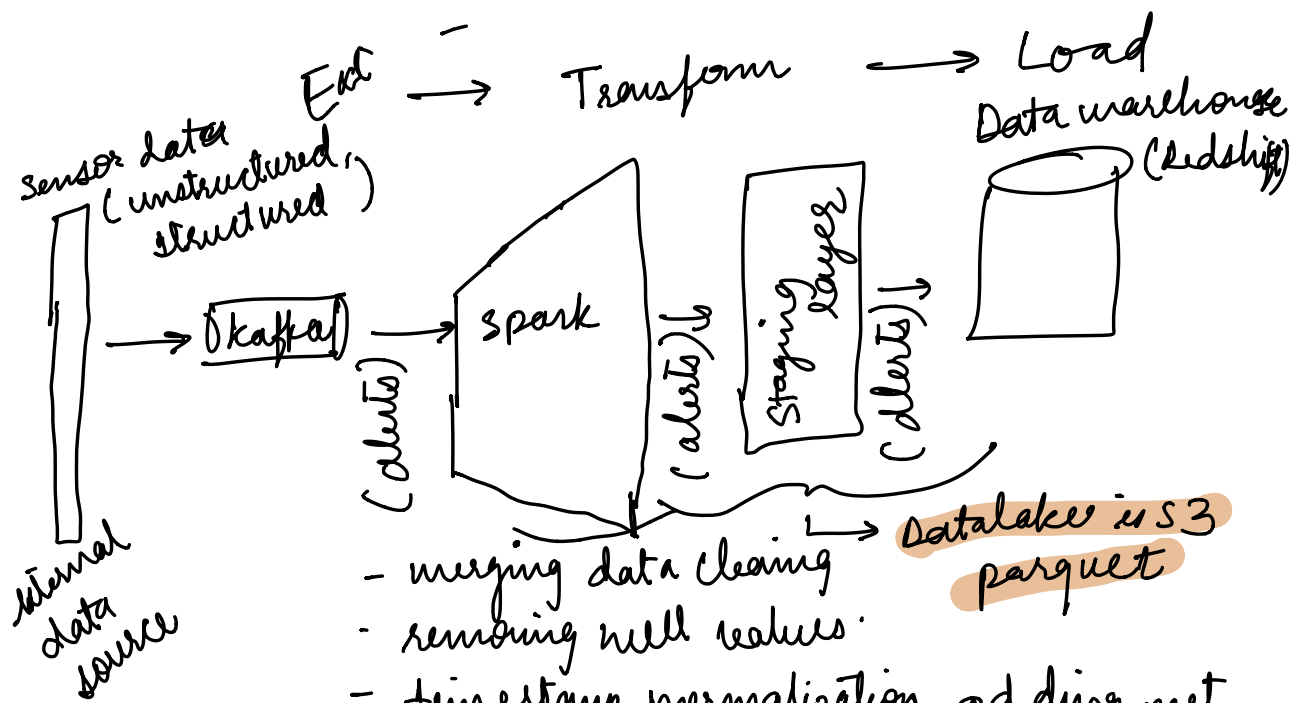 Ext → Transform → Load
Data warehouse
(Redshift)
sensor data
(unstructured,
structured)
kafka
spark
Staging
layer
(alerts)
(alerts)
(alerts)
data
source
Datalake is S3
parquet
- merging data cleaning
- removing null values.
- timestamp normalization, adding met